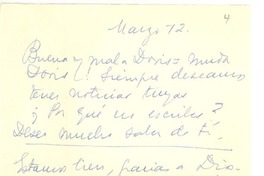 4
Marzo 12.
Buena y mala Doris = muda
Doris! Siempre deseamos
tener noticias tuyas
¿Por qué no escribes?
Deseo mucho saber de ti.
Estamos bien, gracias a Dios.